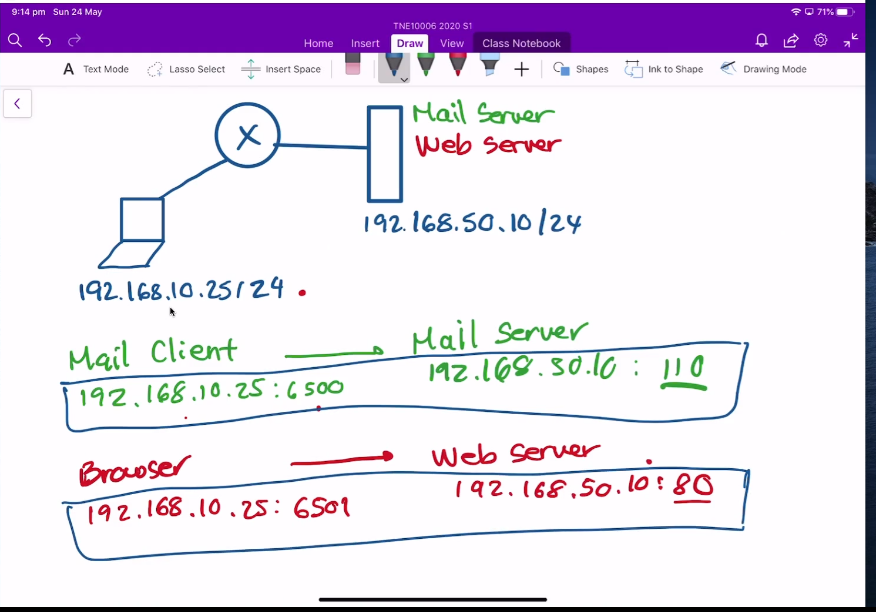 9:14 pm Sun 24 May
71%
TNE10006 2020 S1
Home Insert Draw View Class Notebook
A Text Mode Lasso Select Insert Space Shapes Ink to Shape Drawing Mode
X
Mail Server
Web Server
192.168.50.10/24
192.168.10.25/24
Mail Client
Mail Server
192.168.10.25:6500
192.168.50.10:110
Browser
Web Server
192.168.10.25:6501
192.168.50.10:80